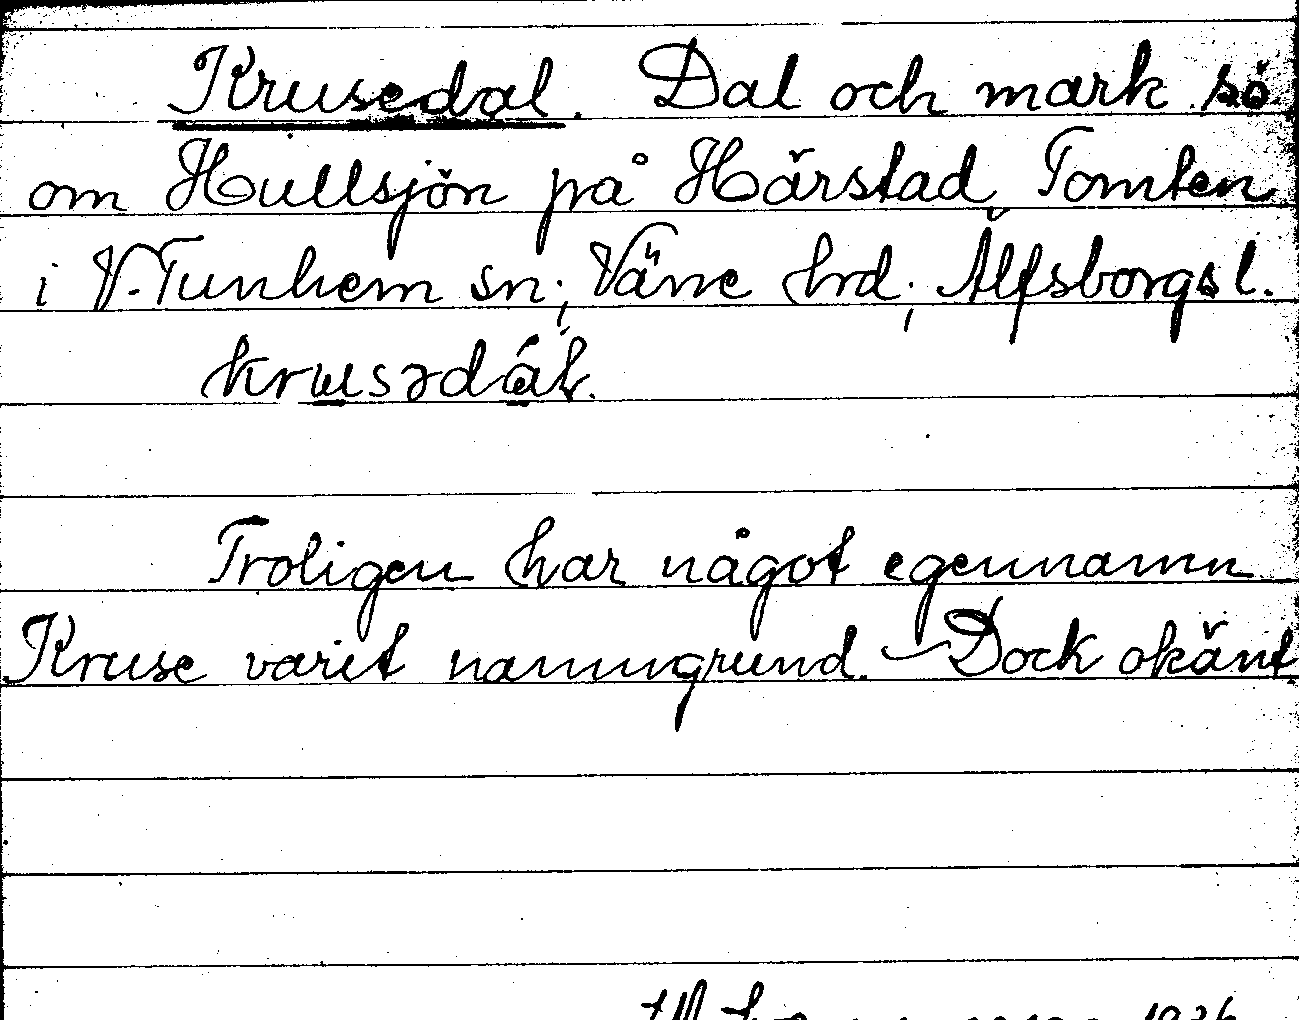 Krusedal. Dal och mark sö
om Hullsjön på Härstad Tomten
i V. Tunhem sn; Väne hrd; Älfsborgs l.
krusədál.
Troligen har något egennamn
Kruse varit namngrund. – Dock okänt